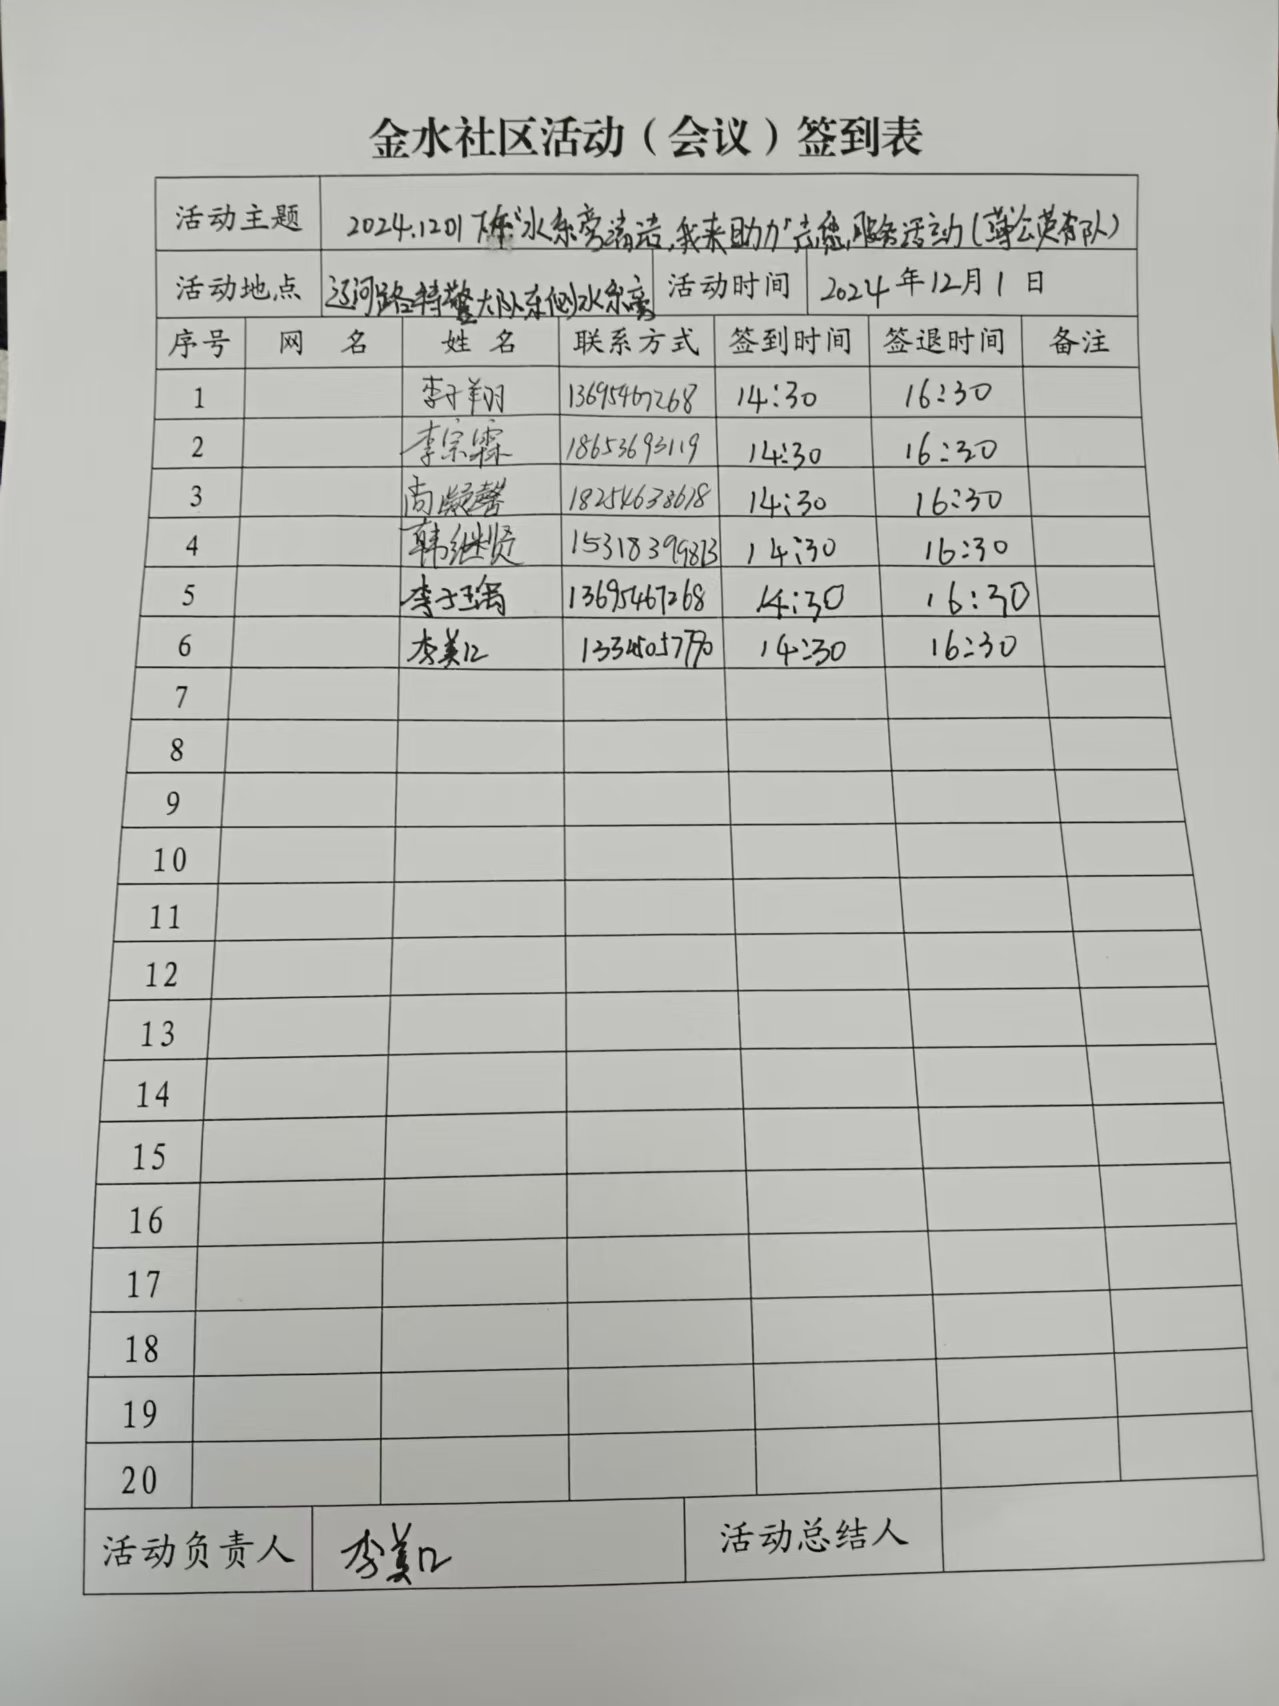 金水社区活动（会议）签到表
活动主题 2024.1201下午"水系旁清洁,我来助力"志愿服务活动(蒲公英青队)
活动地点 辽河路特警大队东侧水系旁 活动时间 2024年12月1日
序号 网名 姓名 联系方式 签到时间 签退时间 备注
1 李子翔 13695467268 14:30 16:30
2 李宗霖 18653693119 14:30 16:30
3 尚凝馨 18254638618 14:30 16:30
4 韩继贤 15318399813 14:30 16:30
5 李子瑶 13695467268 14:30 16:30
6 李美 14:30 16:30
7
8
9
10
11
12
13
14
15
16
17
18
19
20
活动负责人 李美 活动总结人